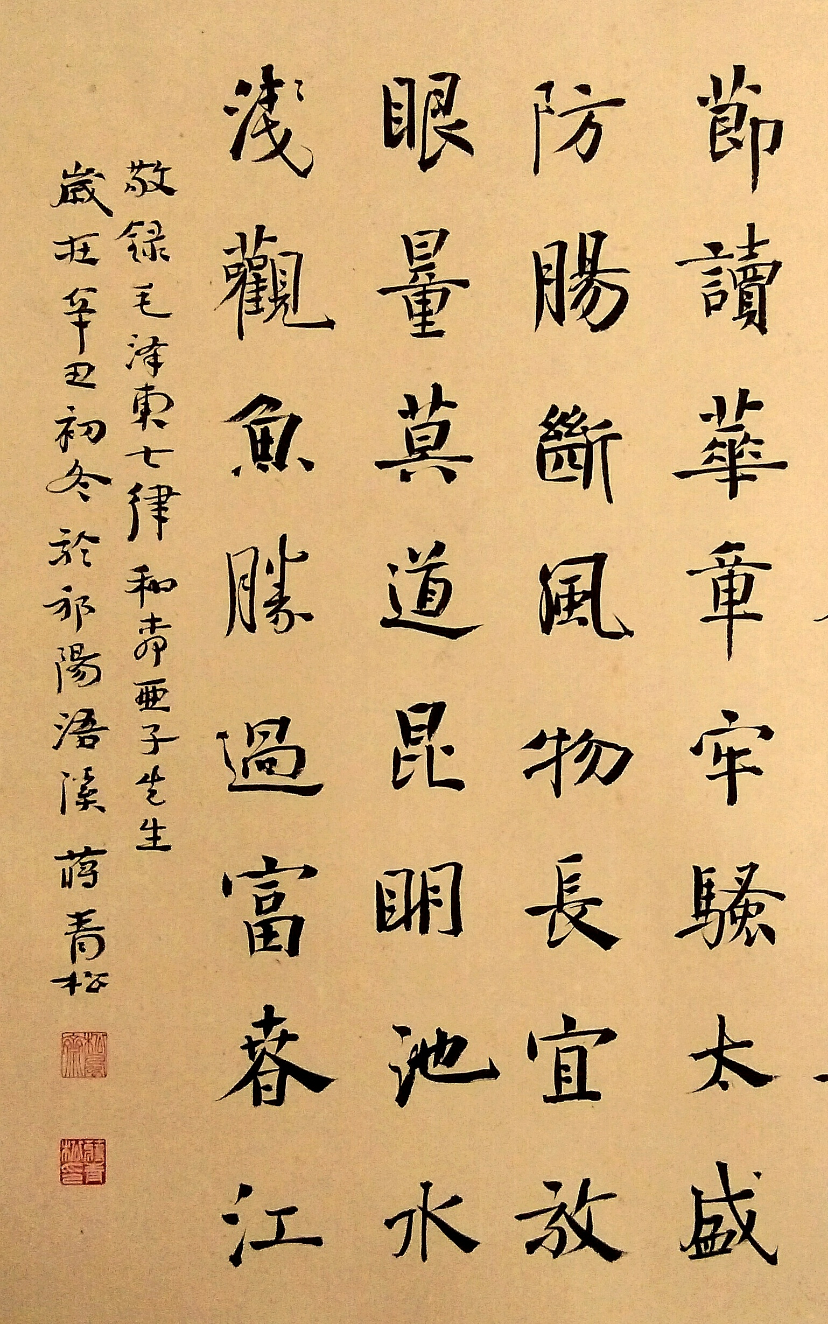 節讀華章牢騷太盛
防腸斷風物長宜放
眼量莫道昆明池水
淺觀魚勝過富春江
敬録毛泽東七律和柳亞子先生
歲在辛丑初冬於祁陽浯溪蔣青松